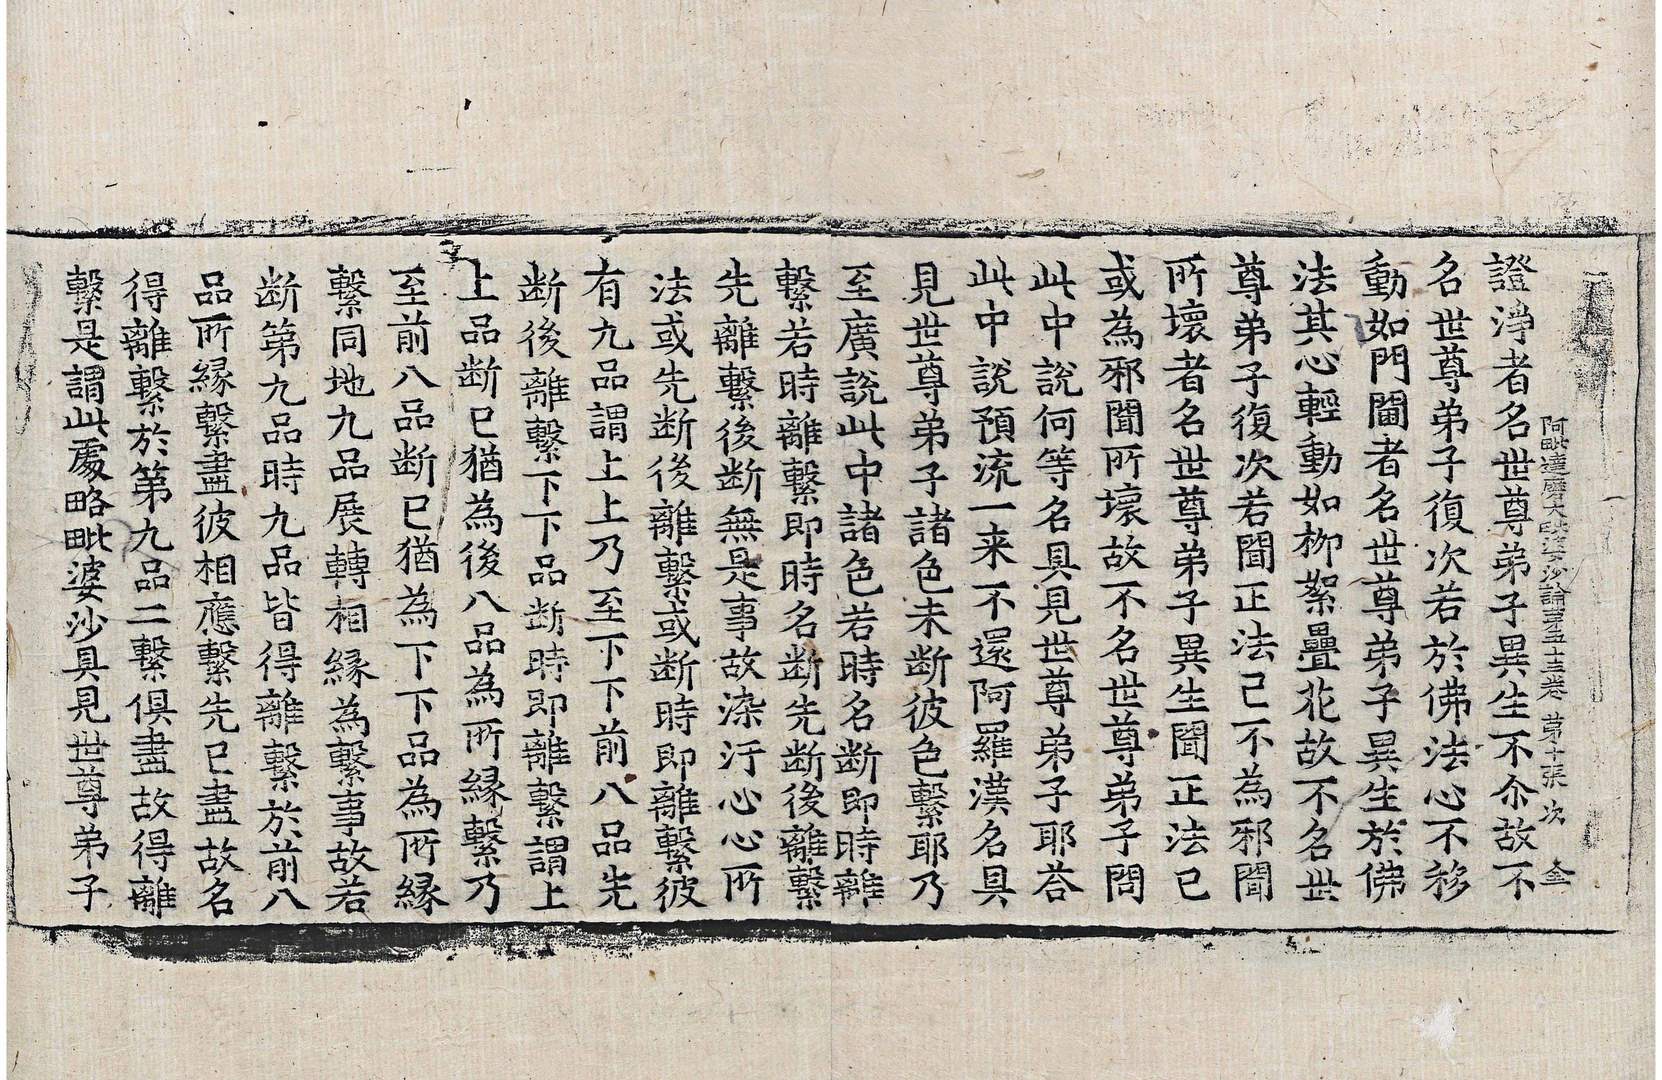 阿毗達磨大毗婆沙論第五十三卷 第十張 次 金
證淨者名世尊弟子異生不尒故不
名世尊弟子復次若於佛法心不移
動如門閫者名世尊弟子異生於佛
法其心輕動如柳絮疊花故不名世
尊弟子復次若聞正法已不為邪聞
所壞者名世尊弟子異生聞正法已
或為邪聞所壞故不名世尊弟子問
此中說何等名具見世尊弟子耶荅
此中說預流一来不還阿羅漢名具
見世尊弟子諸色未断彼色繫耶乃
至廣說此中諸色若時名断即時離
繫若時離繫即時名断先断後離繫
先離繫後断無是事故染汙心心所
法或先断後離繫或断時即離繫彼
有九品謂上上乃至下下前八品先
断後離繫下下品断時即離繫謂上
上品断已猶為後八品為所縁繫乃
至前八品断已猶為下下品為所縁
繫同地九品展轉相縁為繫事故若
断第九品時九品皆得離繫於前八
品所縁繫盡彼相應繫先已盡故名
得離繫於第九品二繫俱盡故得離
繫是謂此處略毗婆沙具見世尊弟子